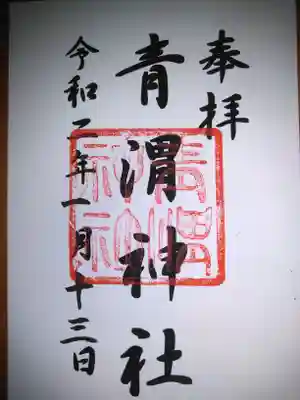 奉拝
青渭神社
令和二年一月十三日
青渭
神社